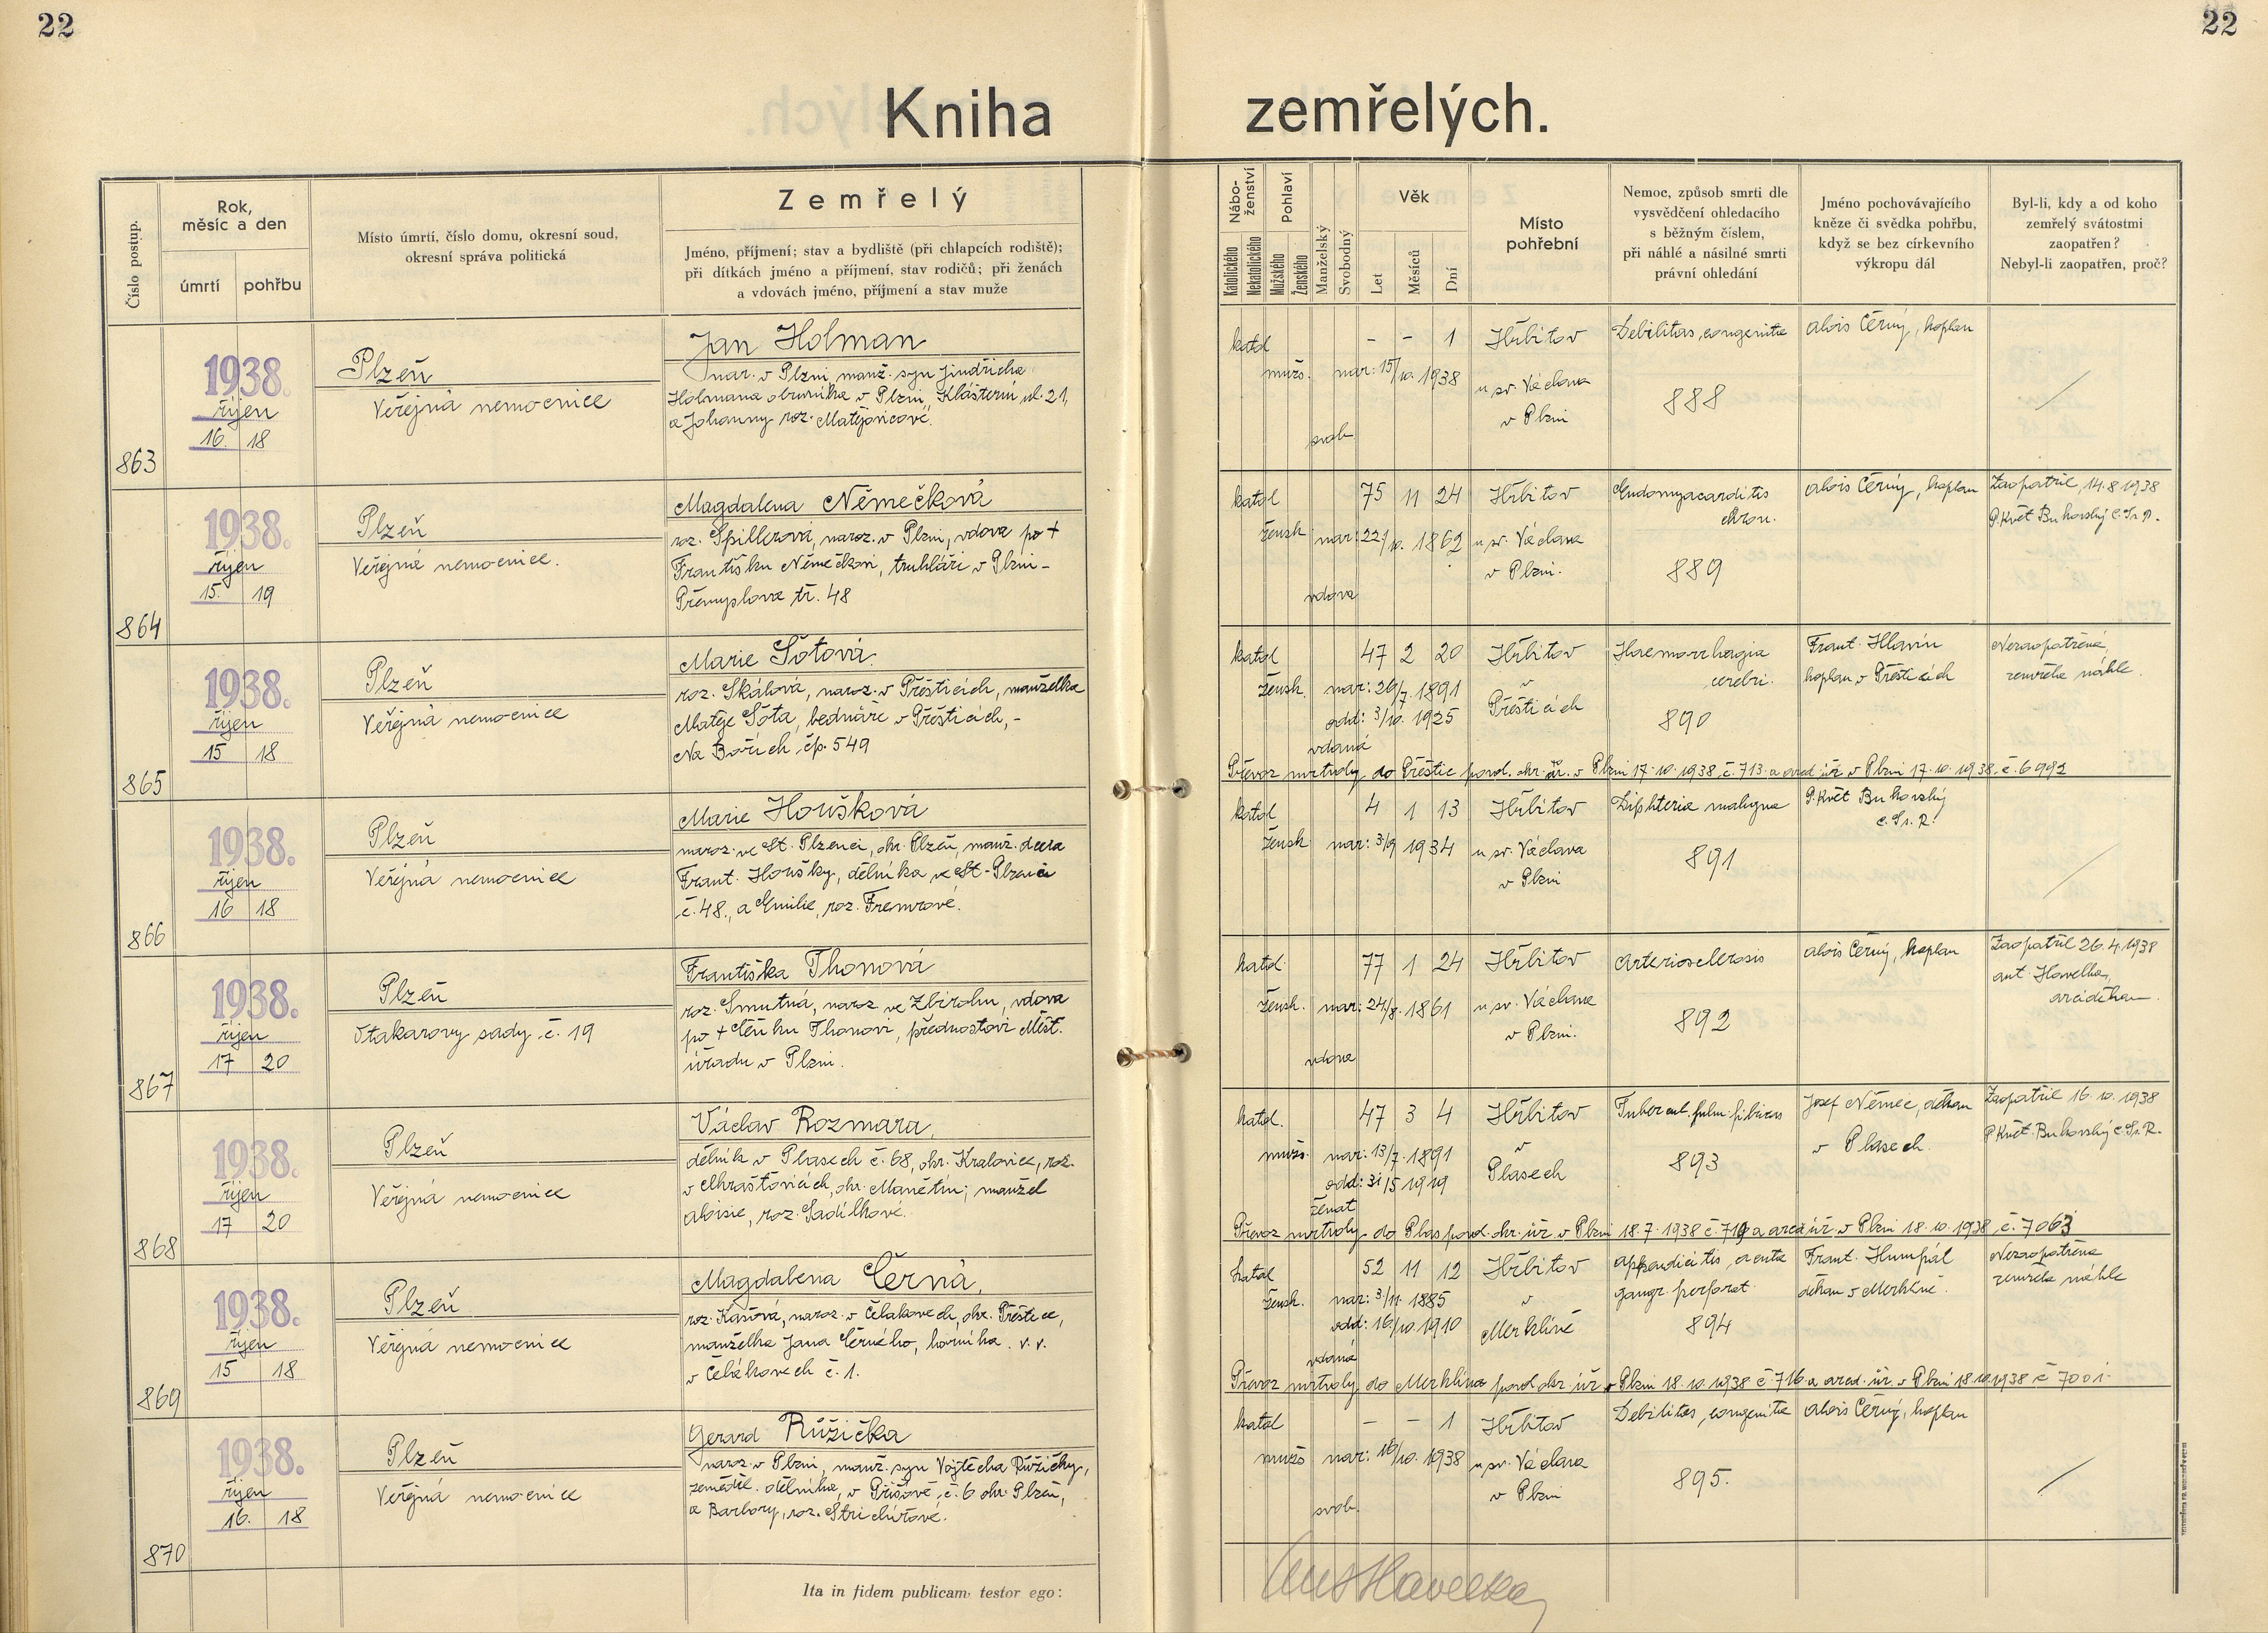 22
22
Kniha zemřelých.
Číslo postup.
Rok, měsíc a den
úmrtí
pohřbu
Místo úmrtí, číslo domu, okresní soud,
okresní správa politická
Zemřelý
Jméno, příjmení; stav a bydliště (při chlapcích rodiště);
při dítkách jméno a příjmení, stav rodičů; při ženách
a vdovách jméno, příjmení a stav muže
Nábo-
ženství
Katolického
Nekatolického
Pohlaví
Mužského
Ženského
Manželský
Svobodný
Věk
Let
Měsíců
Dní
Místo
pohřební
Nemoc, způsob smrti dle
vysvědčení ohledacího
s běžným číslem,
při náhlé a násilné smrti
právní ohledání
Jméno pochovávajícího
kněze či svědka pohřbu,
když se bez církevního
výkropu dál
Byl-li, kdy a od koho
zemřelý svátostmi
zaopatřen?
Nebyl-li zaopatřen, proč?
863
1938.
říjen
16. 18
Plzeň
Veřejná nemocnice
Jan Holman
nar. v Plzni, manž. syn Jindřicha
Holmana obuvníka v Plzni, Klášterní ul. 21,
a Johanny roz. Matějovicové.
katol
mužs.
svob.
- - 1
nar: 15/10. 1938
Hřbitov
u sv. Václava
v Plzni
Debilitas, congenita
888
Alois Černý, kaplan
864
1938.
říjen
15. 19
Plzeň
Veřejná nemocnice.
Magdalena Němečková
roz. Spillerová, naroz. v Plzni, vdova po +
Františku Němečkovi, truhláři v Plzni -
Přemyslova tř. 48
katol
žensk
vdova
75 11 24
nar: 22/10. 1862
Hřbitov
u sv. Václava
v Plzni.
Endomyocarditis
chron.
889
Alois Černý, kaplan
Zaopatřil, 14.8.1938
P. Květ Bukovský C.Ss.R.
865
1938.
říjen
15 18
Plzeň
Veřejná nemocnice
Marie Šotová
roz. Skálová, naroz. v Přešticích, manželka
Matěje Šota, bednáře v Přešticích, -
Na Bořích, čp. 549
katol
žensk.
vdaná
47 2 20
nar: 26/7. 1891
odd: 3/10. 1925
Hřbitov
v
Přešticích
Haemorrhagia
cerebri.
890
Frant. Hlavín
kaplan v Přešticích
Nezaopatřená,
zemřela náhle.
Převoz mrtvoly do Přeštic povol. okr. úř. v Plzni 17.10.1938, č. 713. a arcd. úř. v Plzni 17.10.1938. č. 6992
866
1938.
říjen
16 18
Plzeň
Veřejná nemocnice
Marie Houšková
naroz. ve St. Plzenci, okr. Plzeň, manž. dcera
Frant. Houšky, dělníka ve St. Plzenci
č. 48., a Emilie, roz. Fremrové.
katol
žensk
4 1 13
nar: 3/9 1934
Hřbitov
u sv. Václava
v Plzni
Diphteria maligna
891
P. Květ Bukovský
C.Ss.R.
867
1938.
říjen
17 20
Plzeň
Otakarovy sady č. 19
Františka Thonová
roz. Smutná, naroz. ve Zbirohu, vdova
po + Čeňku Thonovi, přednostovi Měst.
úřadu v Plzni.
katol.
žensk.
vdova
77 1 24
nar: 24/8. 1861
Hřbitov
u sv. Václava
v Plzni.
Arteriosclerosis
892
Alois Černý, kaplan
Zaopatřil 26.4.1938
Ant. Havelka,
arciděkan.
868
1938.
říjen
17 20
Plzeň
Veřejná nemocnice
Václav Rozmara,
dělník v Plasech č. 68, okr. Kralovice, roz.
v Chrašťovicích, okr. Manětín; manžel
Aloisie, roz. Sadílkové.
katol.
mužs.
ženat
47 3 4
nar: 13/7. 1891
odd: 31/5 1919
Hřbitov
v
Plasech
Tubercul. pulm. fibrosa
893
Josef Němec, děkan
v Plasech.
Zaopatřil 16.10.1938
P. Květ. Bukovský C.Ss.R.
Převoz mrtvoly do Plas povol. okr. úř. v Plzni 18.7.1938 č. 719 a arcd úř. v Plzni 18.10.1938 č. 7063
869
1938.
říjen
15 18
Plzeň
Veřejná nemocnice
Magdalena Černá,
roz. Kašová, naroz. v Čelákovech, okr. Přeštice,
manželka Jana Černého, horníka v. v.
v Čelákovech č. 1.
katol
žensk.
vdaná
52 11 12
nar: 3/11. 1885
odd: 16/10 1910
Hřbitov
v
Merklíně
Appendicitis, acuta
gangr. perforat.
894
Frant. Humpál
děkan v Merklíně.
Nezaopatřena
zemřela náhle
Převoz mrtvoly do Merklína povol okr. úř. v Plzni 18.10.1938 č. 716 a arcd. úř. v Plzni 18.10.1938 č 7001.
870
1938.
říjen
16. 18
Plzeň
Veřejná nemocnice
Gerard Růžička
naroz. v Plzni, manž. syn Vojtěcha Růžičky,
zeměděl. dělníka, v Příšově, č. 6 okr. Plzeň,
a Barbory, roz.
katol
mužs
svob.
- - 1
nar: 16/10. 1938
Hřbitov
u sv. Václava
v Plzni
Debilitas, congenita
895.
Alois Černý, kaplan
Ita in fidem publicam testor ego:
Ant Havelka